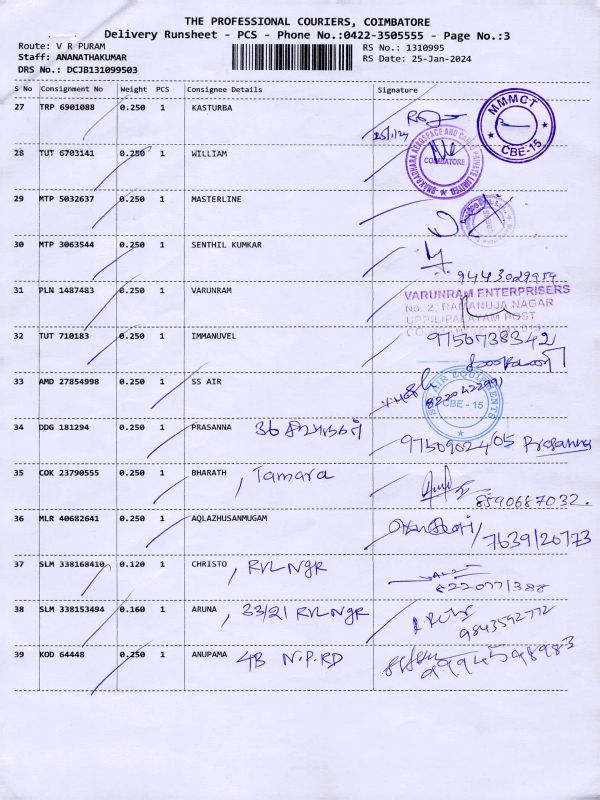 THE PROFESSIONAL COURIERS, COIMBATORE
Delivery Runsheet - PCS - Phone No.:0422-3505555 - Page No.:3
Route: V R PURAM RS No.: 1310995
Staff: ANANATHAKUMAR RS Date: 25-Jan-2024
DRS No.: DCJB131099503
S No Consignment No Weight PCS Consignee Details Signature
27 TRP 6901088 0.250 1 KASTURBA
25/1/24
MMMCT
CBE-15
28 TUT 6703141 0.250 1 WILLIAM
COIMBATORE
29 MTP 5032637 0.250 1 MASTERLINE
30 MTP 3063544 0.250 1 SENTHIL KUMKAR
9443029959
31 PLN 1487483 0.250 1 VARUNRAM
VARUNRAM ENTERPRISERS
No. 2, RAMANUJA NAGAR
UPPILIPALAYAM POST
32 TUT 710183 0.250 1 IMMANUVEL 9750738342
33 AMD 27854998 0.250 1 SS AIR
8220422991
AIR EQUIPMENTS
CBE - 15
34 DDG 181294 0.250 1 PRASANNA 36
9750902405 Prasanna
35 COK 23790555 0.250 1 BHARATH , Tamara
8590687032.
36 MLR 40682641 0.250 1 AQLAZHUSANMUGAM
7639120773
37 SLM 338168410 0.120 1 CHRISTO , RVL NGR
8220771388
38 SLM 338153494 0.160 1 ARUNA , 33/21 RVL NGR
9843592772
39 KOD 64448 0.250 1 ANUPAMA 4B N.P.RD
9994598983